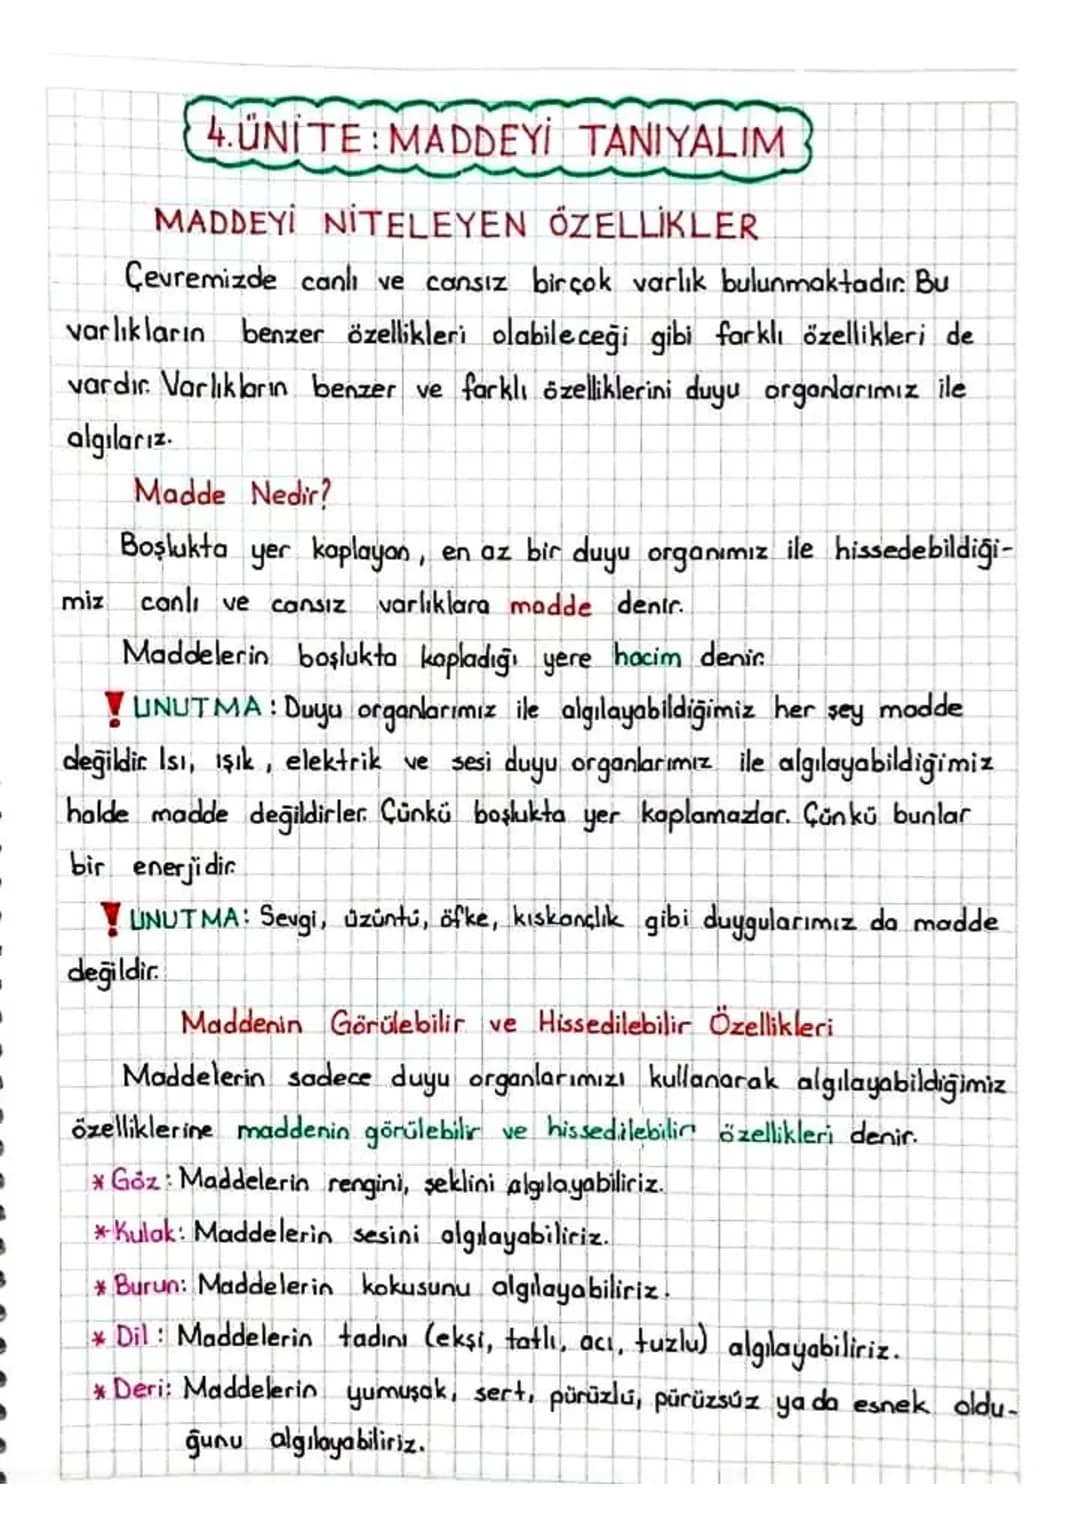 4.ÜNİTE: MADDEYİ TANIYALIM
MADDEYİ NİTELEYEN ÖZELLİKLER
Çevremizde canlı ve cansız birçok varlık bulunmaktadır. Bu
varlıkların benzer özellikleri olabileceği gibi farklı özellikleri de
vardır. Varlıkların benzer ve farklı özelliklerini duyu organlarımız ile
algılarız.
Madde Nedir?
Boşlukta yer kaplayan, en az bir duyu organımız ile hissedebildiği-
miz canlı ve cansız varlıklara madde denir.
Maddelerin boşlukta kapladığı yere hacim denir.
! UNUTMA: Duyu organlarımız ile algılayabildiğimiz her şey madde
değildir. Isı, ışık, elektrik ve sesi duyu organlarımız ile algılayabildiğimiz
halde madde değildirler. Çünkü boşlukta yer kaplamazlar. Çünkü bunlar
bir enerjidir.
! UNUTMA: Sevgi, üzüntü, öfke, kıskançlık gibi duygularımız da madde
değildir.
Maddenin Görülebilir ve Hissedilebilir Özellikleri
Maddelerin sadece duyu organlarımızı kullanarak algılayabildiğimiz
özelliklerine maddenin görülebilir ve hissedilebilir özellikleri denir.
* Göz: Maddelerin rengini, şeklini algılayabiliriz.
* Kulak: Maddelerin sesini algılayabiliriz.
* Burun: Maddelerin kokusunu algılayabiliriz.
* Dil: Maddelerin tadını (ekşi, tatlı, acı, tuzlu) algılayabiliriz.
* Deri: Maddelerin yumuşak, sert, pürüzlü, pürüzsüz ya da esnek oldu-
ğunu algılayabiliriz.